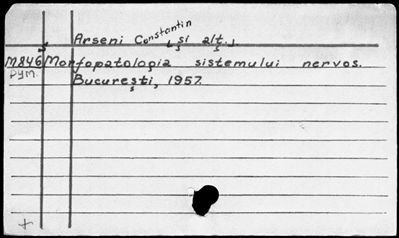 Arseni Constantin
[și alț.]
M846 Morfopatologia sistemului nervos.
рум. București, 1957.
+